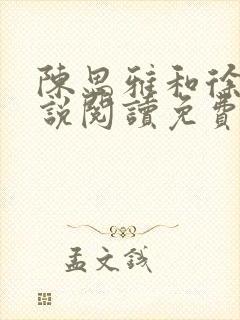 陳思雅和徐
說閱讀免費
孟文錢